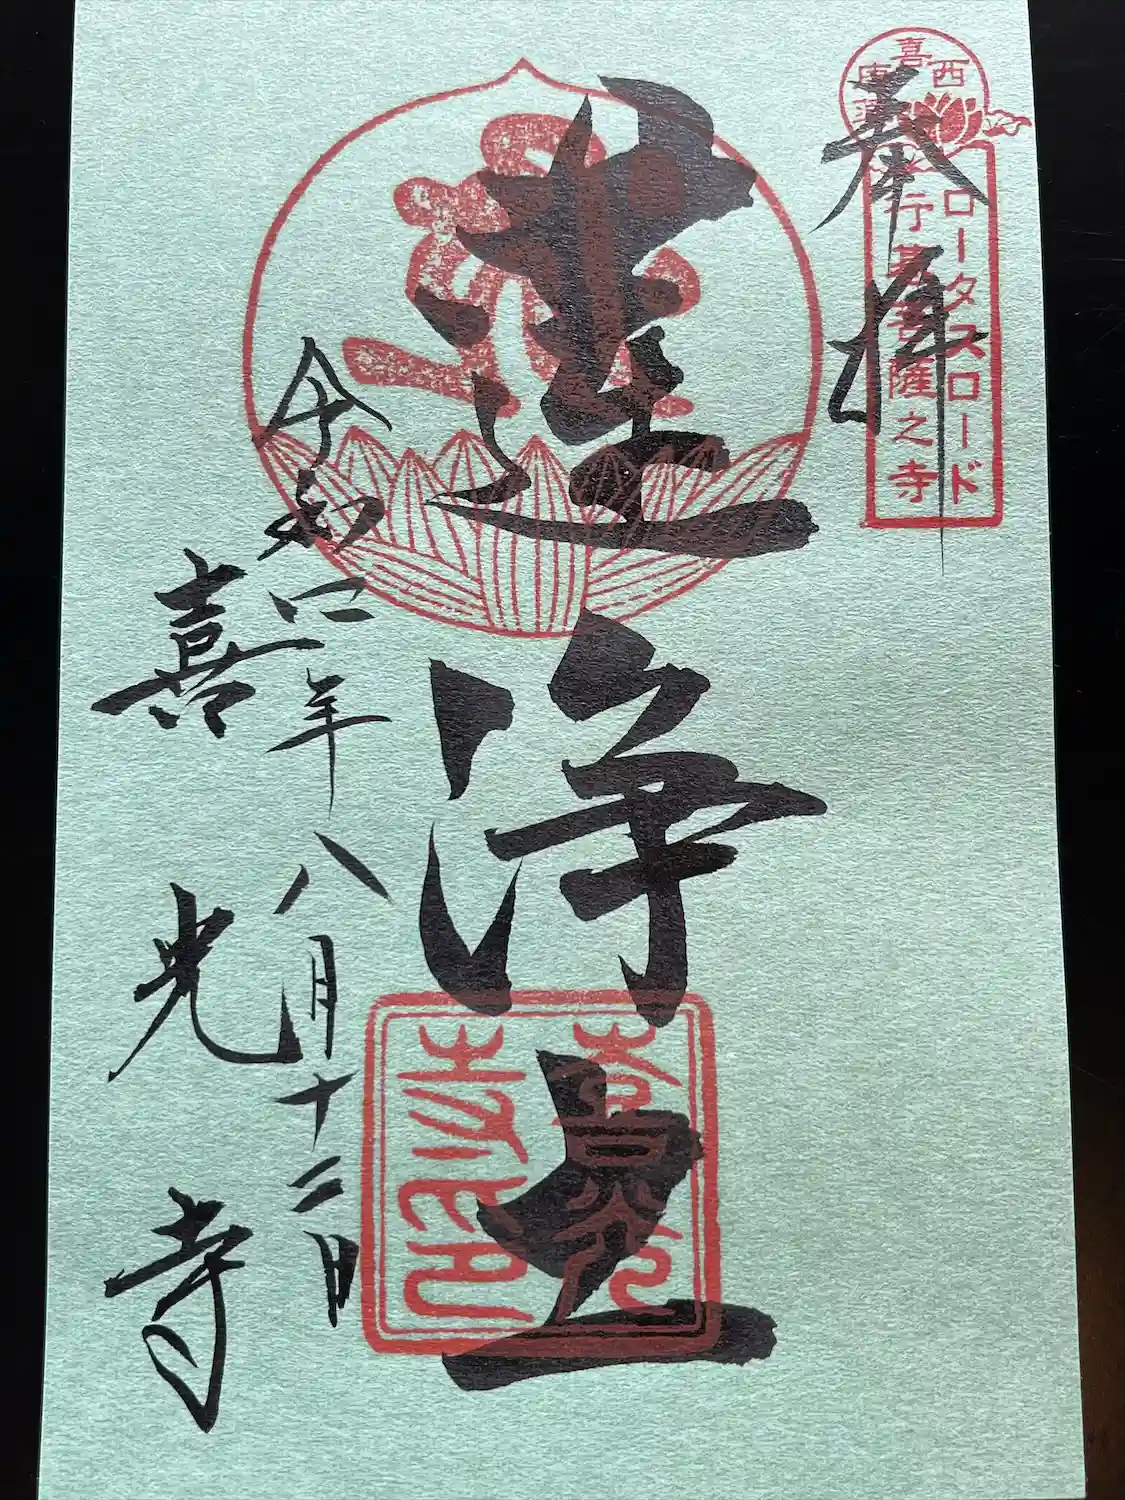 奉拝
喜
西
ロータスロード
行基菩薩之寺
蓮浄土
令和四年八月十二日
喜光寺